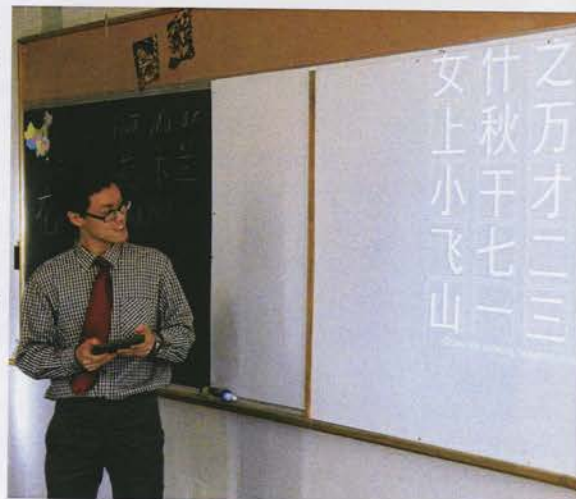 之万才二三
什秋干七一
女上小飞山
木兰